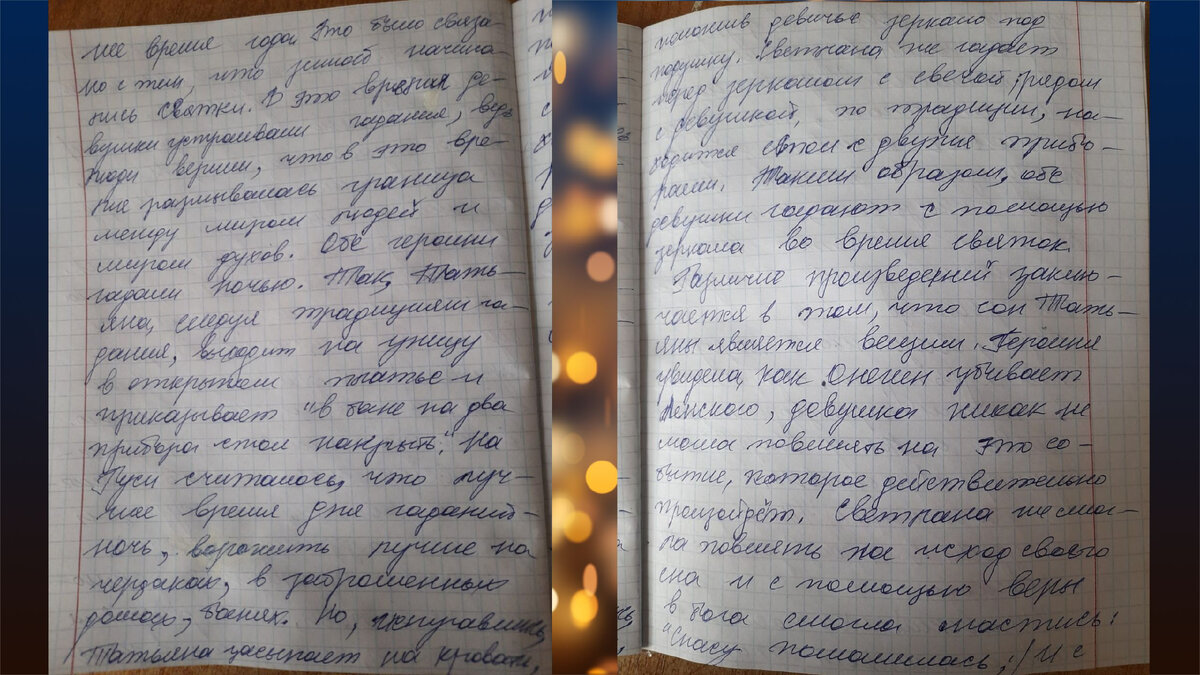 же время года. Это было связа-
но с тем, что зимой начина-
лись святки. В это время де-
вушки устраивали гадания, ведь
люди верили, что в это вре-
мя размывалась граница
между миром людей и
миром духов. Обе героини
гадали ночью. Так, Тать-
яна, следуя традициям га-
дания, выходит на улицу
в открытом платье и
приказывает "в бане на два
прибора стол накрыть". На
Руси считалось, что луч-
шее время для гаданий -
ночь, ворожить лучше на
чердаках, в заброшенных
домах, банях. Но, испугавшись,
Татьяна засыпает на кровати,
положив девичье зеркало под
подушку. Светлана же гадает
перед зеркалом с свечой, рядом
с девушкой, по традиции, на-
ходится стол с двумя прибо-
рами. Таким образом, обе
девушки гадают с помощью
зеркала во время святок.
Различие произведений заклю-
чается в том, что сон Тать-
яны является вещим. Героиня
увидела, как Онегин убивает
Ленского, девушка никак не
могла повлиять на это со-
бытие, которое действительно
произойдёт. Светлана же смог-
ла повлиять на исход своего
сна и с помощью веры
в бога смогла спастись:
"Спасу помолилась;/ И с